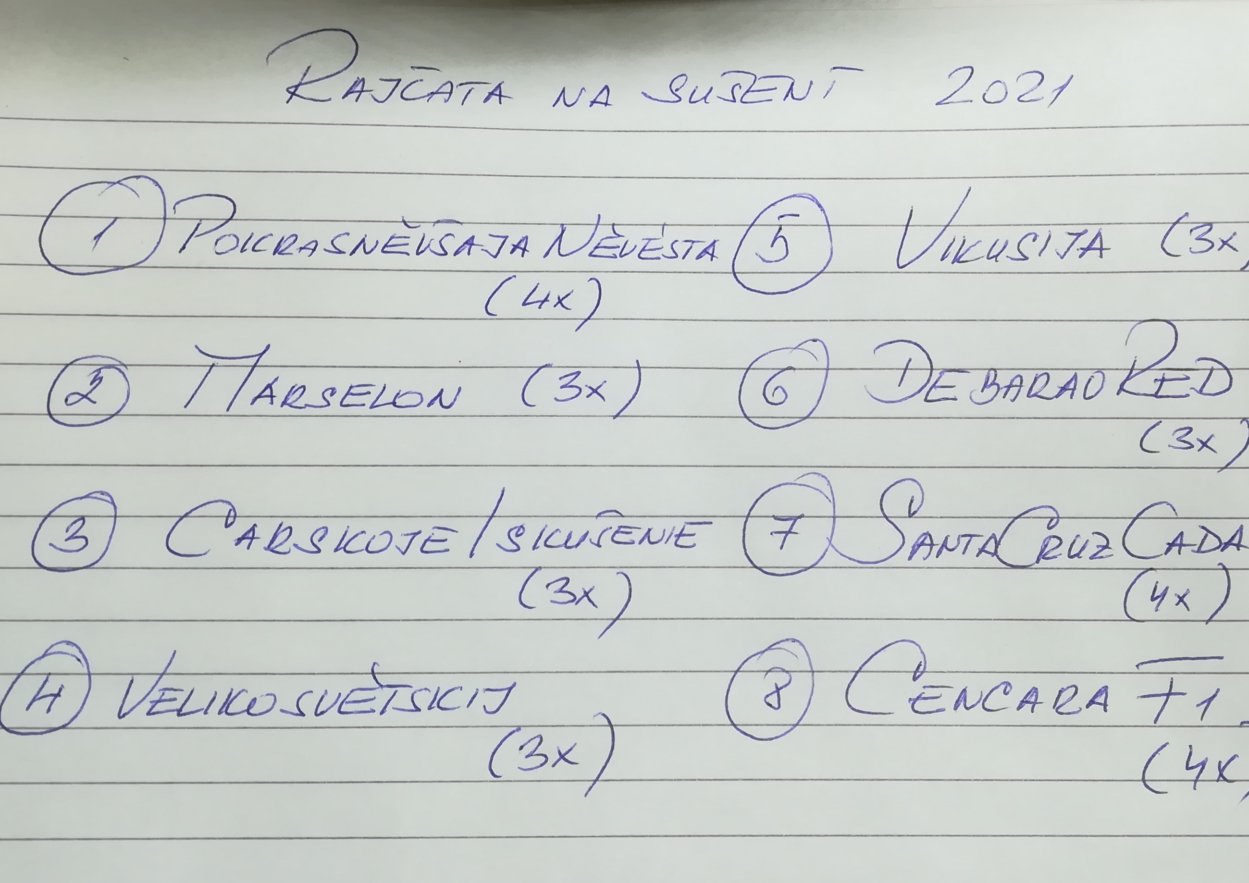 RAJČATA NA SUŠENÍ 2021
1 POKRASNĚVŠAJA NĚVĚSTA
(4x)
2 MARSELON (3x)
3 CARSKOJE/SKUŠENIE
(3x)
4 VELIKOSVĚTSKIJ
(3x)
5 VIKUSIJA (3x)
6 DEBARAO RED
(3x)
7 SANTA CRUZ CADA
(4x)
8 CENCARA F1
(4x)